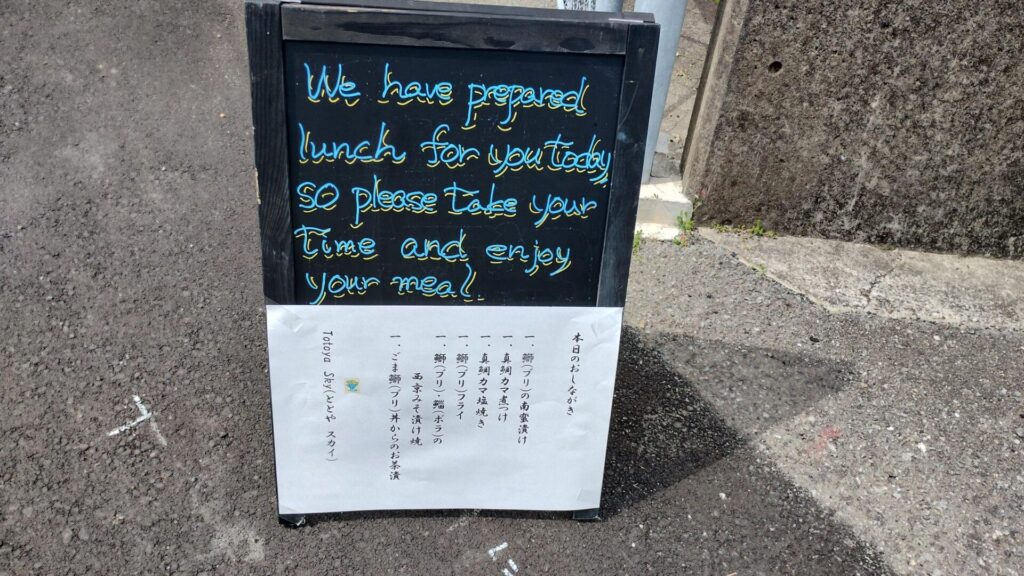 We have prepared
lunch for you today
so please take your
time and enjoy
your meal.
本日のおしながき
一、鰤(ブリ)の南蛮漬け
一、真鯛カマ煮つけ
一、真鯛カマ塩焼き
一、鰤(ブリ)フライ
一、鰤(ブリ)・鯔(ボラ)の
西京みそ漬け焼
一、ごま鰤(ブリ)丼からのお茶漬
Totoya Sky(ととや スカイ)